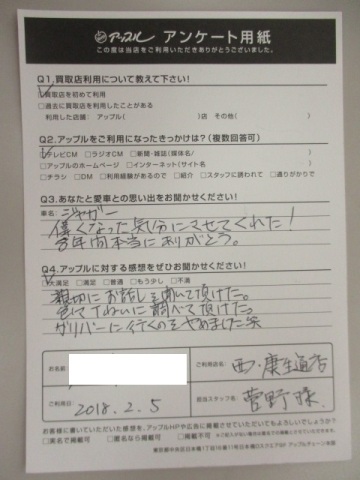 アップル アンケート用紙
この度は当店をご利用いただきありがとうございました。
Q1.買取店利用について教えて下さい!
買取店を初めて利用
□過去に買取店を利用したことがある
利用した店舗: アップル( )店 その他( )
Q2.アップルをご利用になったきっかけは?(複数回答可)
テレビCM □ラジオCM □新聞・雑誌(媒体名/ )
□アップルのホームページ □インターネット(サイト名 )
□チラシ □DM □利用経験があるので □紹介 □スタッフに誘われて □通りがかりで
Q3.あなたと愛車との思い出をお聞かせください!
車名: ジャガー
偉くなった気分にマせてくれた!
8年間本当にありがとう。
Q4.アップルに対する感想をぜひお聞かせください!
大満足 □満足 □普通 □もう少し □不満
親切にお話しを聞いて頂けた。
色々ていねいに調べて頂けた。
ガリバーに行くのをやめました笑
お名前
ご利用店名: 西・康生通店
ご利用日 2018.2.5
担当スタッフ名: 菅野 様
お客様に書いていただいた感想を、アップルHPや広告に掲載させていただいてもよろしいでしょうか?
□実名で掲載可 □匿名なら掲載可 □掲載不可